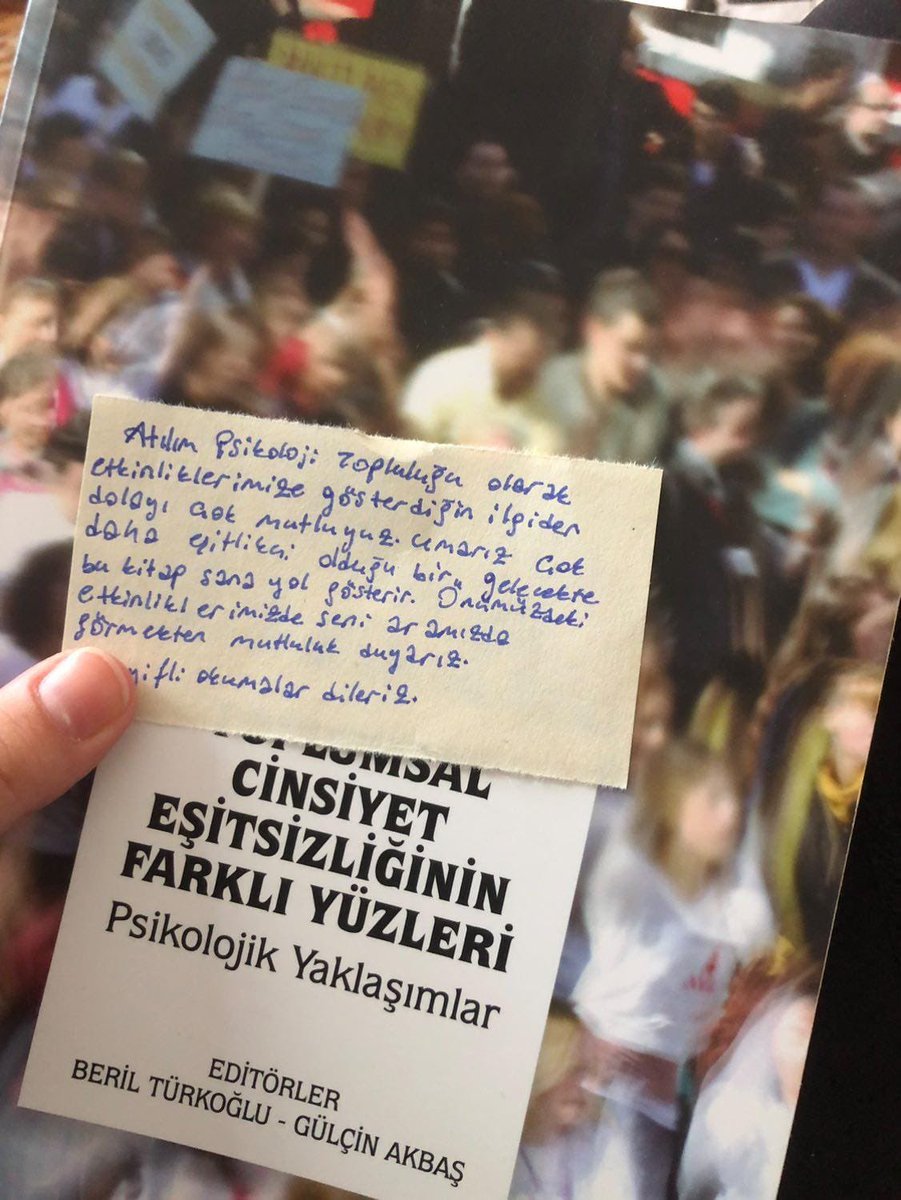 Atılım Psikoloji Topluluğu olarak
etkinliklerimize gösterdiğin ilgiden
dolayı çok mutluyuz. Umarız çok
daha eşitlikçi olduğu bir gelecekte
bu kitap sana yol gösterir. Önümüzdeki
etkinliklerimizde seni aramızda
görmekten mutluluk duyarız.
yifli okumalar dileriz.
TOPLUMSAL
CİNSİYET
EŞİTSİZLİĞİNİN
FARKLI YÜZLERİ
Psikolojik Yaklaşımlar
EDİTÖRLER
BERİL TÜRKOĞLU - GÜLÇİN AKBAŞ